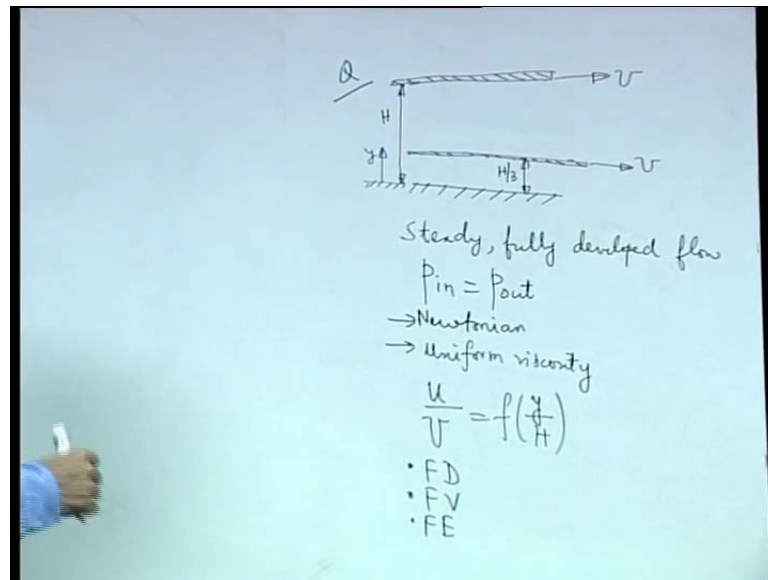 Q
H
U
y
H/3
U
Steady, fully developed flow
Pin = Pout
→ Newtonian
→ Uniform viscosity
u/U = f(y/H)
• FD
• FV
• FE